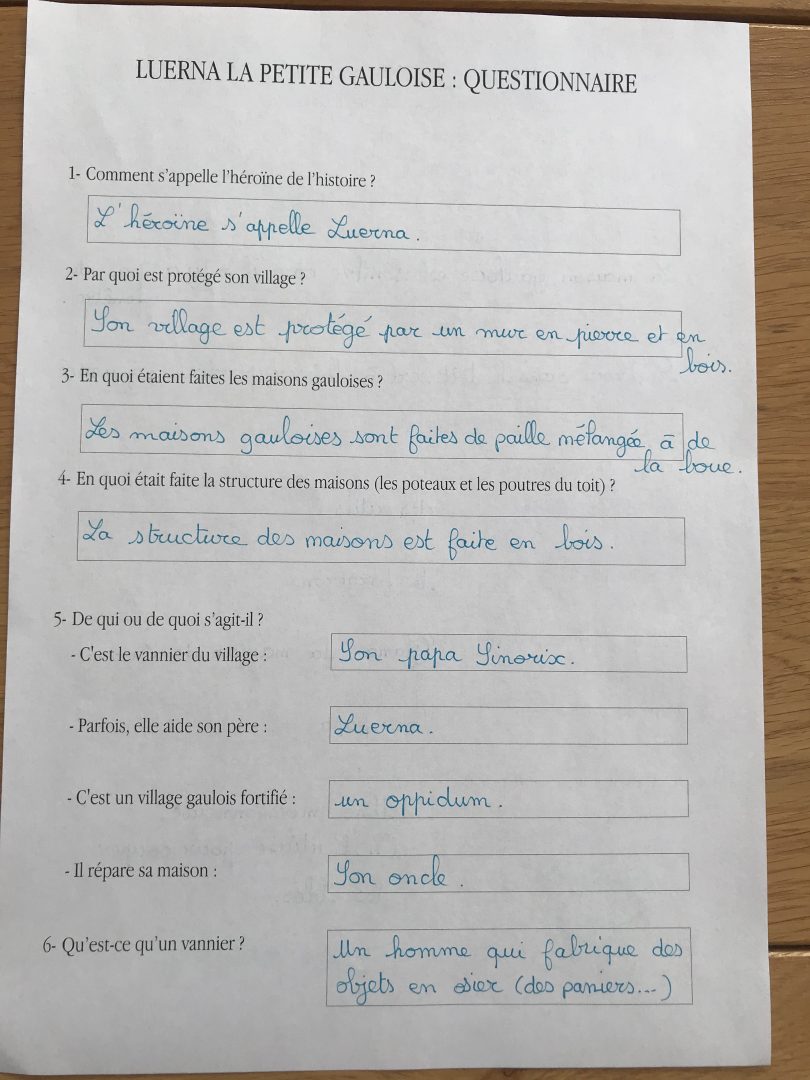 LUERNA LA PETITE GAULOISE : QUESTIONNAIRE
1- Comment s'appelle l'héroïne de l'histoire ?
L'héroïne s'appelle Luerna.
2- Par quoi est protégé son village ?
Son village est protégé par un mur en pierre et en
bois.
3- En quoi étaient faites les maisons gauloises ?
Les maisons gauloises sont faites de paille mélangée à de
la boue.
4- En quoi était faite la structure des maisons (les poteaux et les poutres du toit) ?
La structure des maisons est faite en bois.
5- De qui ou de quoi s'agit-il ?
- C'est le vannier du village : Son papa Sinorix.
- Parfois, elle aide son père : Luerna.
- C'est un village gaulois fortifié : un oppidum.
- Il répare sa maison : Son oncle.
6- Qu'est-ce qu'un vannier ? Un homme qui fabrique des
objets en osier (des paniers...)